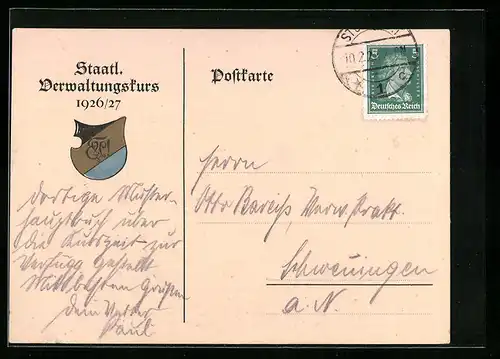 Staatl.
Verwaltungskurs
1926/27
Postkarte
5 5
Deutsches Reich
10.2.
1
Herrn
Otto Bareiß, Verw. Prakt.
Schwenningen
a. N.
dortige Muster-
hauptbuch über
die Kurszeit zur
Verfügg gestellt
Mit besten Grüßen
Dein Vetter
Paul